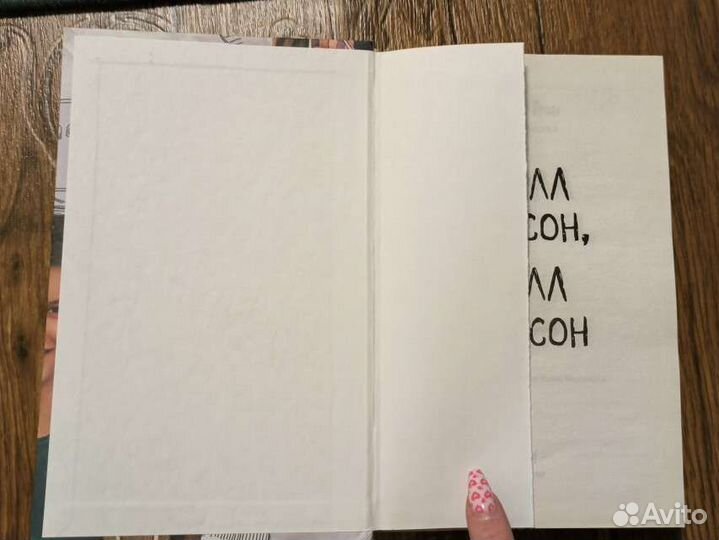 ЛЛ
СОН,
ЛЛ
СОН
Avito